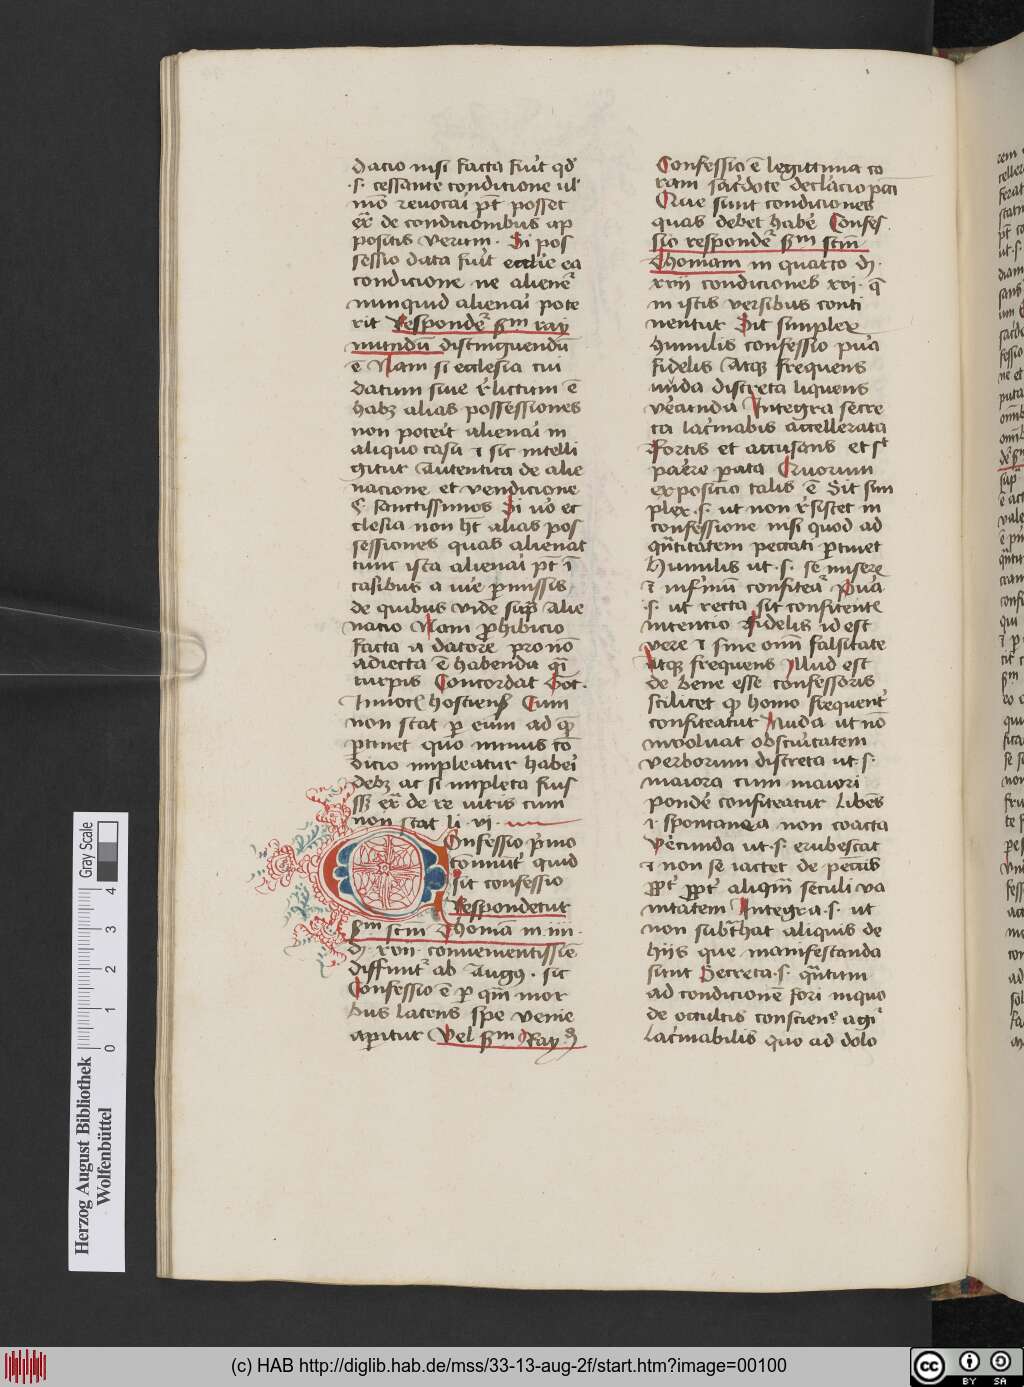 dacio nisi facta fuit qd
.s. cessante conditione ul
mo reuocari pt posset
exr de condicionibus ap
positis verum. Si pos
sessio data fuit ecclie ea
condicione ne alienet
nunquid alienari pote
rit Respondet scdm ray
mundū distinguendū
ē Nam si ecclesia cui
datum siue rlictum ē
habz alias possessiones
non poterit alienari in
aliquo casu et sic intelli
gitur Autentica de alie
nacione et vendicione
§. sanctissimos Si uo ec
clesia non ht alias pos
sessiones quas alienat
tunc ista alienari pt i
casibus a iure pmissis
de quibus vide supra Alie
nacio Nam phibicio
facta a datore pro nō
adiecta ē habenda qn
turpis Concordat Got.
Innoc hostiens Cum
non stat p eum ad que
ptinet quo minus cō
dicio impleatur haberi
debz ac si impleta fuis
ss exr de re iuris cum
non stat li. vi.
Confessio primo
cōmunit quid
sit confessio
Respondetur
scdm scm Thomā in iiii.
di. xvii. conuenientissie
diffinitur ab Augus. sic
Confessio ē p qm mor
bus latens spe venie
apitur Vel scdm Ray.
Confessio ē legittima co
ram sacdote declacio pcci
Que sunt condiciones
quas debet habe Confes
sio respondet scdm scm
Thomam in quarto di.
xvii condiciones xvi. que
in istis versibus conti
nentur Sit simplex
humilis confessio pura
fidelis Atque frequens
nuda discreta liquens
vecunda Integra secre
ta lacrimabis accellerata
Fortis et accusans et sit
parere parata Quorum
expositio talis ē Sit sim
plex .s. ut non rsistet in
confessione nisi quod ad
qntitatem peccati ptinet
Humilis ut .s. se misere
et infirmū confitea Pura
.s. ut recta sit confitente
intencio Fidelis id est
vere et sine omi falsitate
Atque frequens Illud est
de bene esse confessoris
scilicet quod homo frequent
confiteatur Nuda ut nō
inuoluat obscuritatem
verborum discreta ut .s.
maiora cum maiori
pondere confiteatur Libens
et spontanea non coacta
Vecunda ut .s. erubescat
et non se iactet de peccatis
ppt ppt aliqm seculi va
nitatem Integra .s. ut
non subtrahat aliquis de
hiis que manifestanda
sunt Secreta .s. quntum
ad condicionē fori in quo
de occultis conscienc agitur
Lacrimabilis quo ad dolo
Herzog August Bibliothek
Wolfenbüttel
Gray Scale
0 1 2 3 4
(c) HAB http://diglib.hab.de/mss/33-13-aug-2f/start.htm?image=00100
cc BY SA